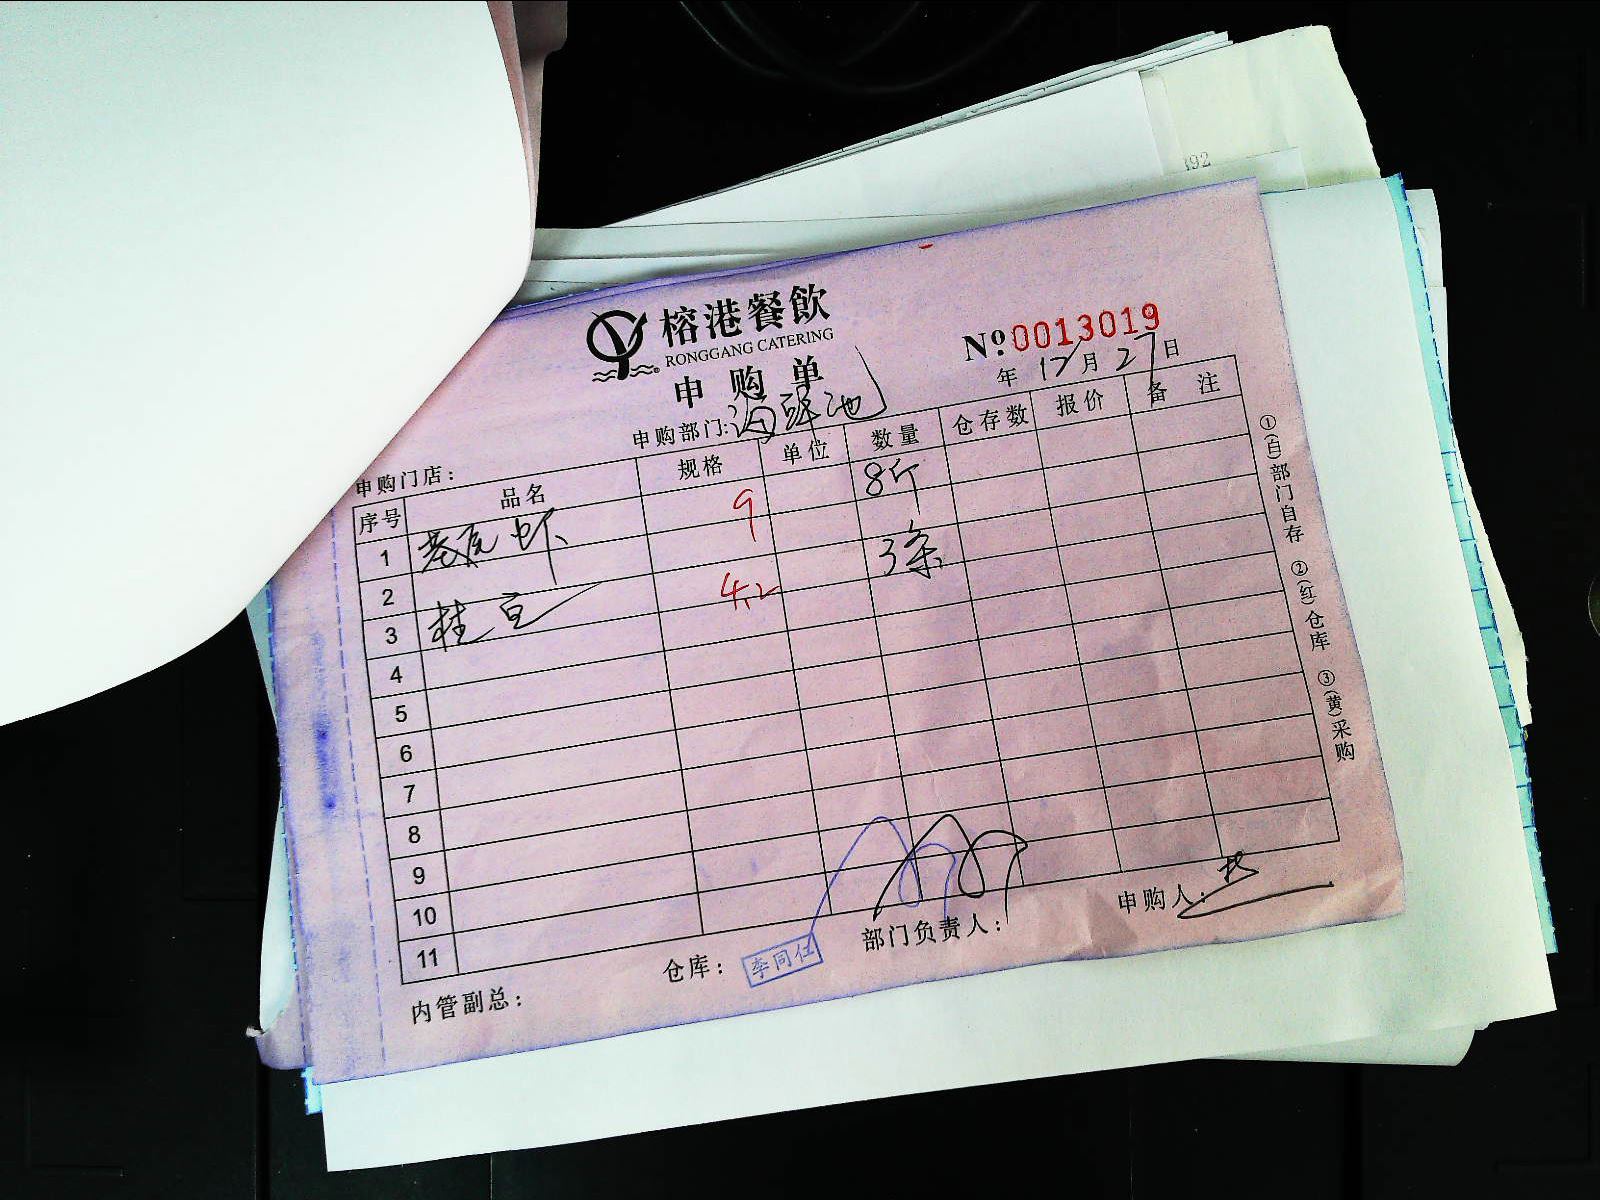 392
榕港餐飲
RONGGANG CATERING
申购单
Nº:0013019
年 12月27日
申购部门:海鲜池
申购门店:
序号 品名 规格 单位 数量 仓存数 报价 备注
1 老虎虾 9 8斤
2
3 桂鱼 4.2 3条
4
5
6
7
8
9
10
11
内管副总: 仓库: 李同任 部门负责人: 申购人:
①(白)部门自存 ②(红)仓库 ③(黄)采购